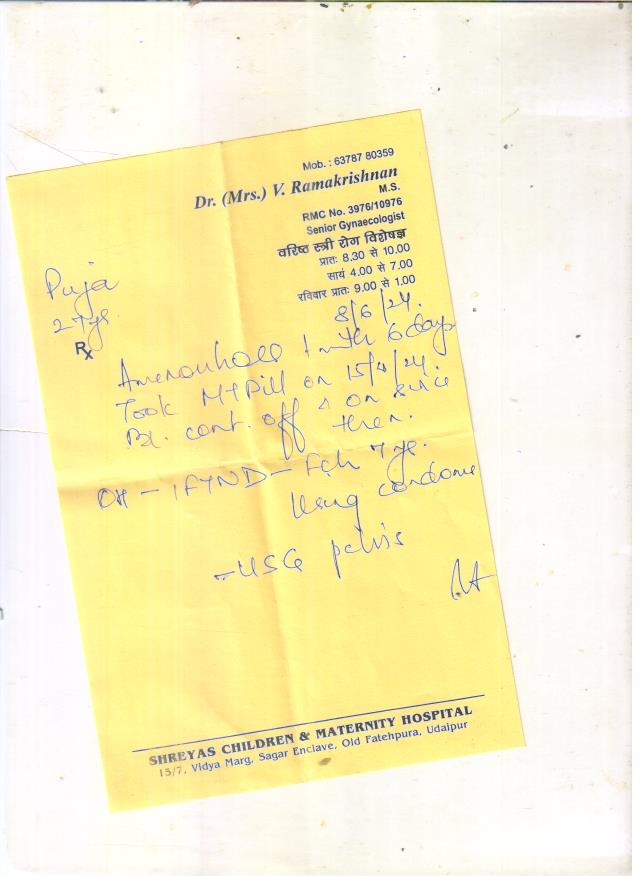 Mob. : 63787 80359
Dr. (Mrs.) V. Ramakrishnan
M.S.
RMC No. 3976/10976
Senior Gynaecologist
वरिष्ठ स्त्री रोग विशेषज्ञ
प्रातः 8.30 से 10.00
सायं 4.00 से 7.00
रविवार प्रातः 9.00 से 1.00
8/6/24.
Puja
27 ys
Rx
Amenorrhoea 1 mth 6 days
Took MTPill on 15/4/24.
Bl. cont. off & on since
then.
OH - 1 FTND - Fch 7 ys.
Using condome
- USG pelvis
SHREYAS CHILDREN & MATERNITY HOSPITAL
15/7, Vidya Marg, Sagar Enclave, Old Fatehpura, Udaipur